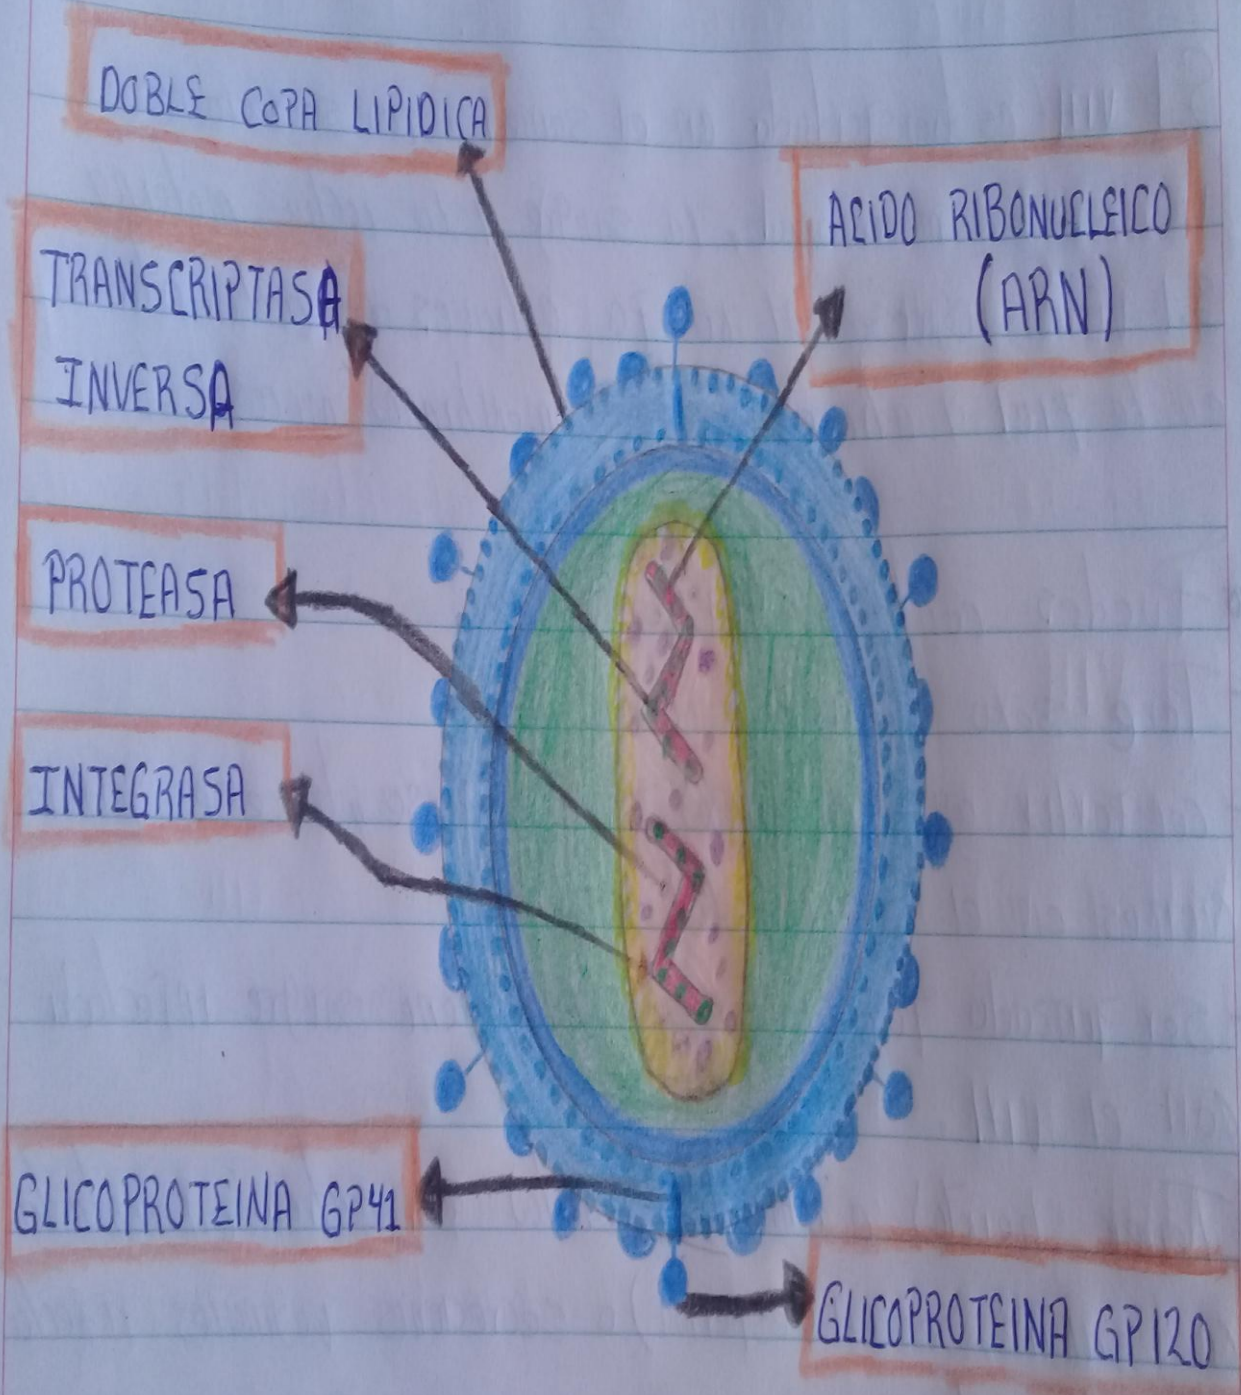 DOBLE COPA LIPIDICA
ACIDO RIBONUCLEICO
(ARN)
TRANSCRIPTASA
INVERSA
PROTEASA
INTEGRASA
GLICOPROTEINA GP41
GLICOPROTEINA GP120